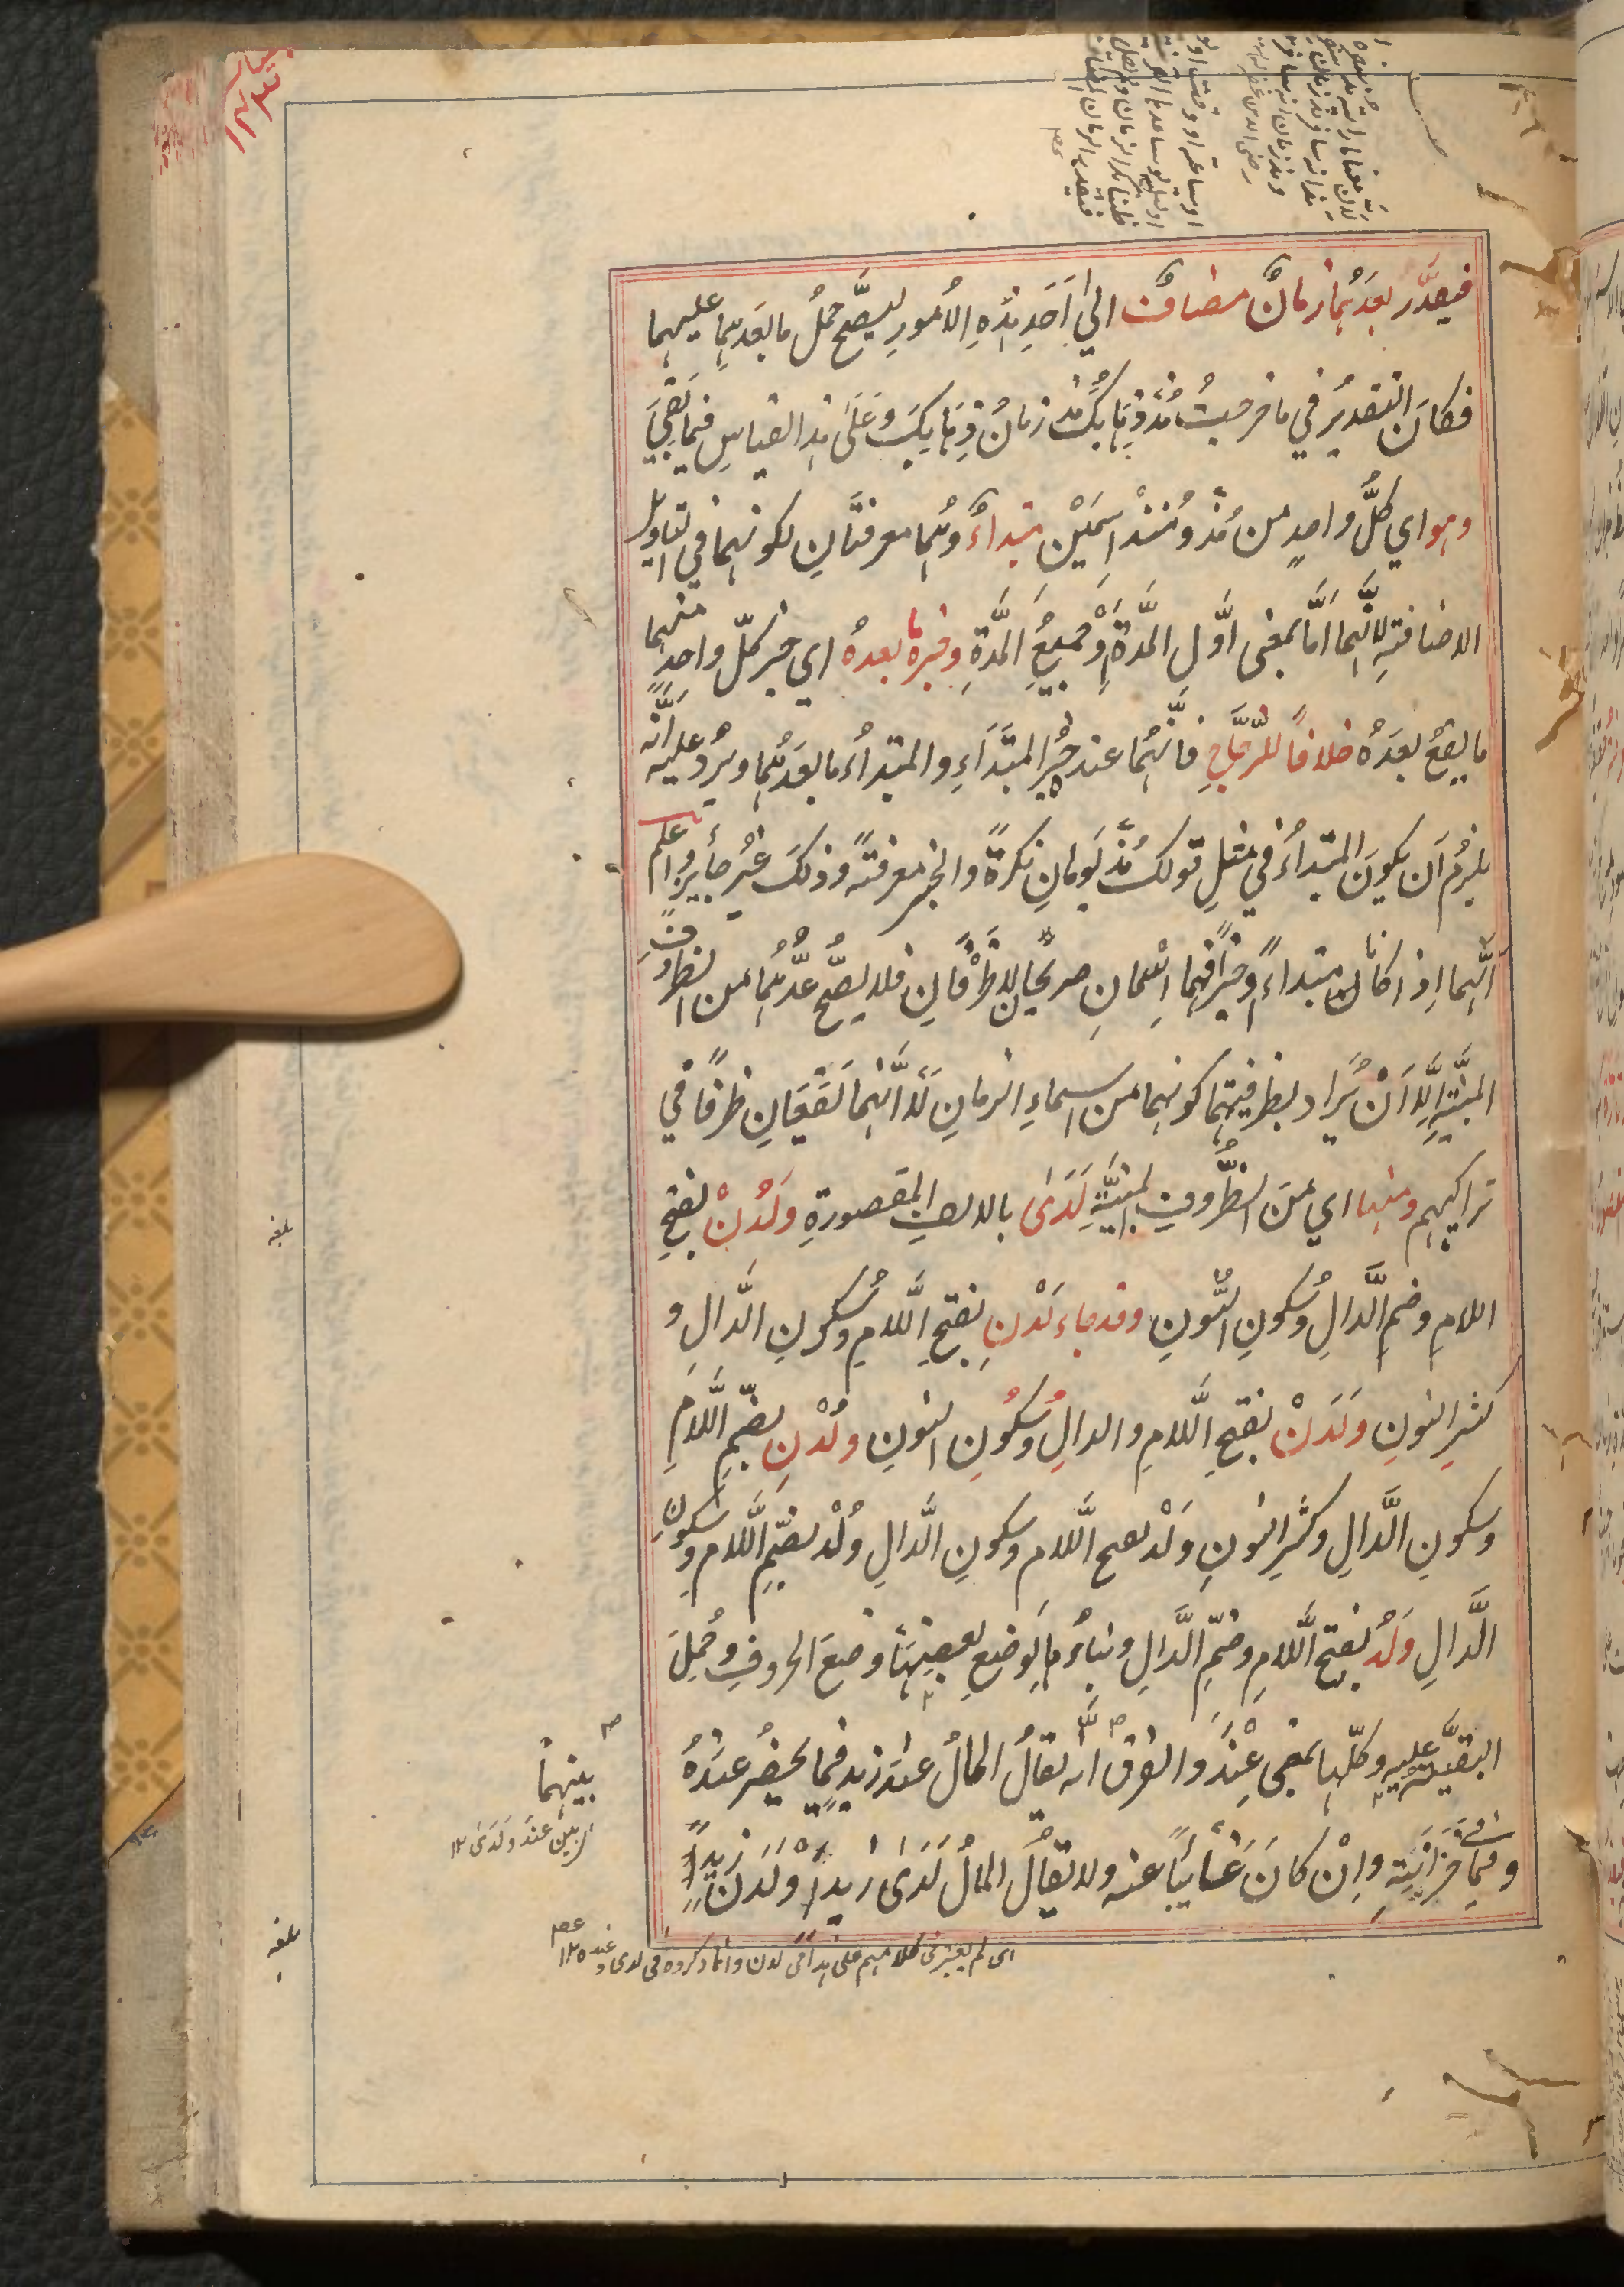 فيقدَّر بعدَهُما زمانٌ مضافٌ الى اَحَدِ هٰذِهِ الاُمورِ ليصحَّ حملُ ما بعدَهما عليهما
فكانَ التقديرُ في ما خرجتُ مُذ ذِهابُكَ مُذ زمانُ ذِهابِكَ وعَلىٰ هٰذا القياسِ فيما بَقِيَ
وهو اي كلُّ واحدٍ من مُذْ ومُنذُ اسمَيْنِ مبتداءٌ وهُما معرفتانِ لكونهما في تاويل
الاضافتهِ لانّهما امّا بمعنى اوّلِ المدّةِ اَوْ جميعِ المدّةِ وخبرهُ ما بعدهُ اي خبر كلّ واحدٍ منهما
ما يقعُ بعدَهُ خلافًا للزَّجاجِ فانَّهُما عنده خبرُ المبتداءِ والمبتداءُ ما بعدَهُما ويرُدُ عليه اَنَّه
يلزمُ اَن يكونَ المبتداءُ في مثلِ قولكَ مُذْ يَومانِ نكرةً والخبر معرفتهً وذلكَ غيرُ جايزٍ واعلم
اَنّهما اِذا كانا مبتداءً وخبرًا فهما اسمانِ صريحانِ لا ظرْفانِ فلا يصحُّ عدُّهُما من الظروفِ
المبنيّةِ اِلّا اَنْ يُراد بظرفيتهما كونهما من اسماءِ الزمانِ لَا اَنّهما تَقَعَانِ ظرفًا في
تراكيبهم ومنها اي منَ الظُّروفِ المبنيَّةِ لَدَىٰ بالالفِ المقصورةِ ولَدُنْ بفتحِ
اللامِ وضمِ الدَّالِ وسُكونِ النّونِ وقد جاء لَدْنِ بفتحِ اللَّامِ وسُكونِ الدَّالِ و
كسرِ النونِ ولَدَنْ بفتحِ اللَّامِ والدالِ وسُكُونِ النونِ ولُدْنِ بضمِ اللَّامِ
وسكونِ الدَّالِ وكسرِ النونِ ولَدْ بفتح اللَّامِ وسكونِ الدَّالِ ولُدْ بضمِّ اللَّامِ وسكونِ
الدَّالِ ولَدُ بفتحِ اللَّامِ وضمِّ الدَّالِ وبناءُها لِوضعِ بعضِها وضعَ الحروفِ وحُمِلَ
البقيَّة عليه وكلّها بمعنى عِنْدَ والفرق انّه يقالُ المالُ عندَ زيدٍ فيما يحضرُ عندَهُ
وفيما في خزائنِهِ واِنْ كانَ غَائِبًا عنه ولا يقالُ المالُ لَدَىٰ زيدٍ اَوْ لَدُنْ زيدٍ
بينهما
اى بين عند ولدى ١٢
بلغه
بلغه